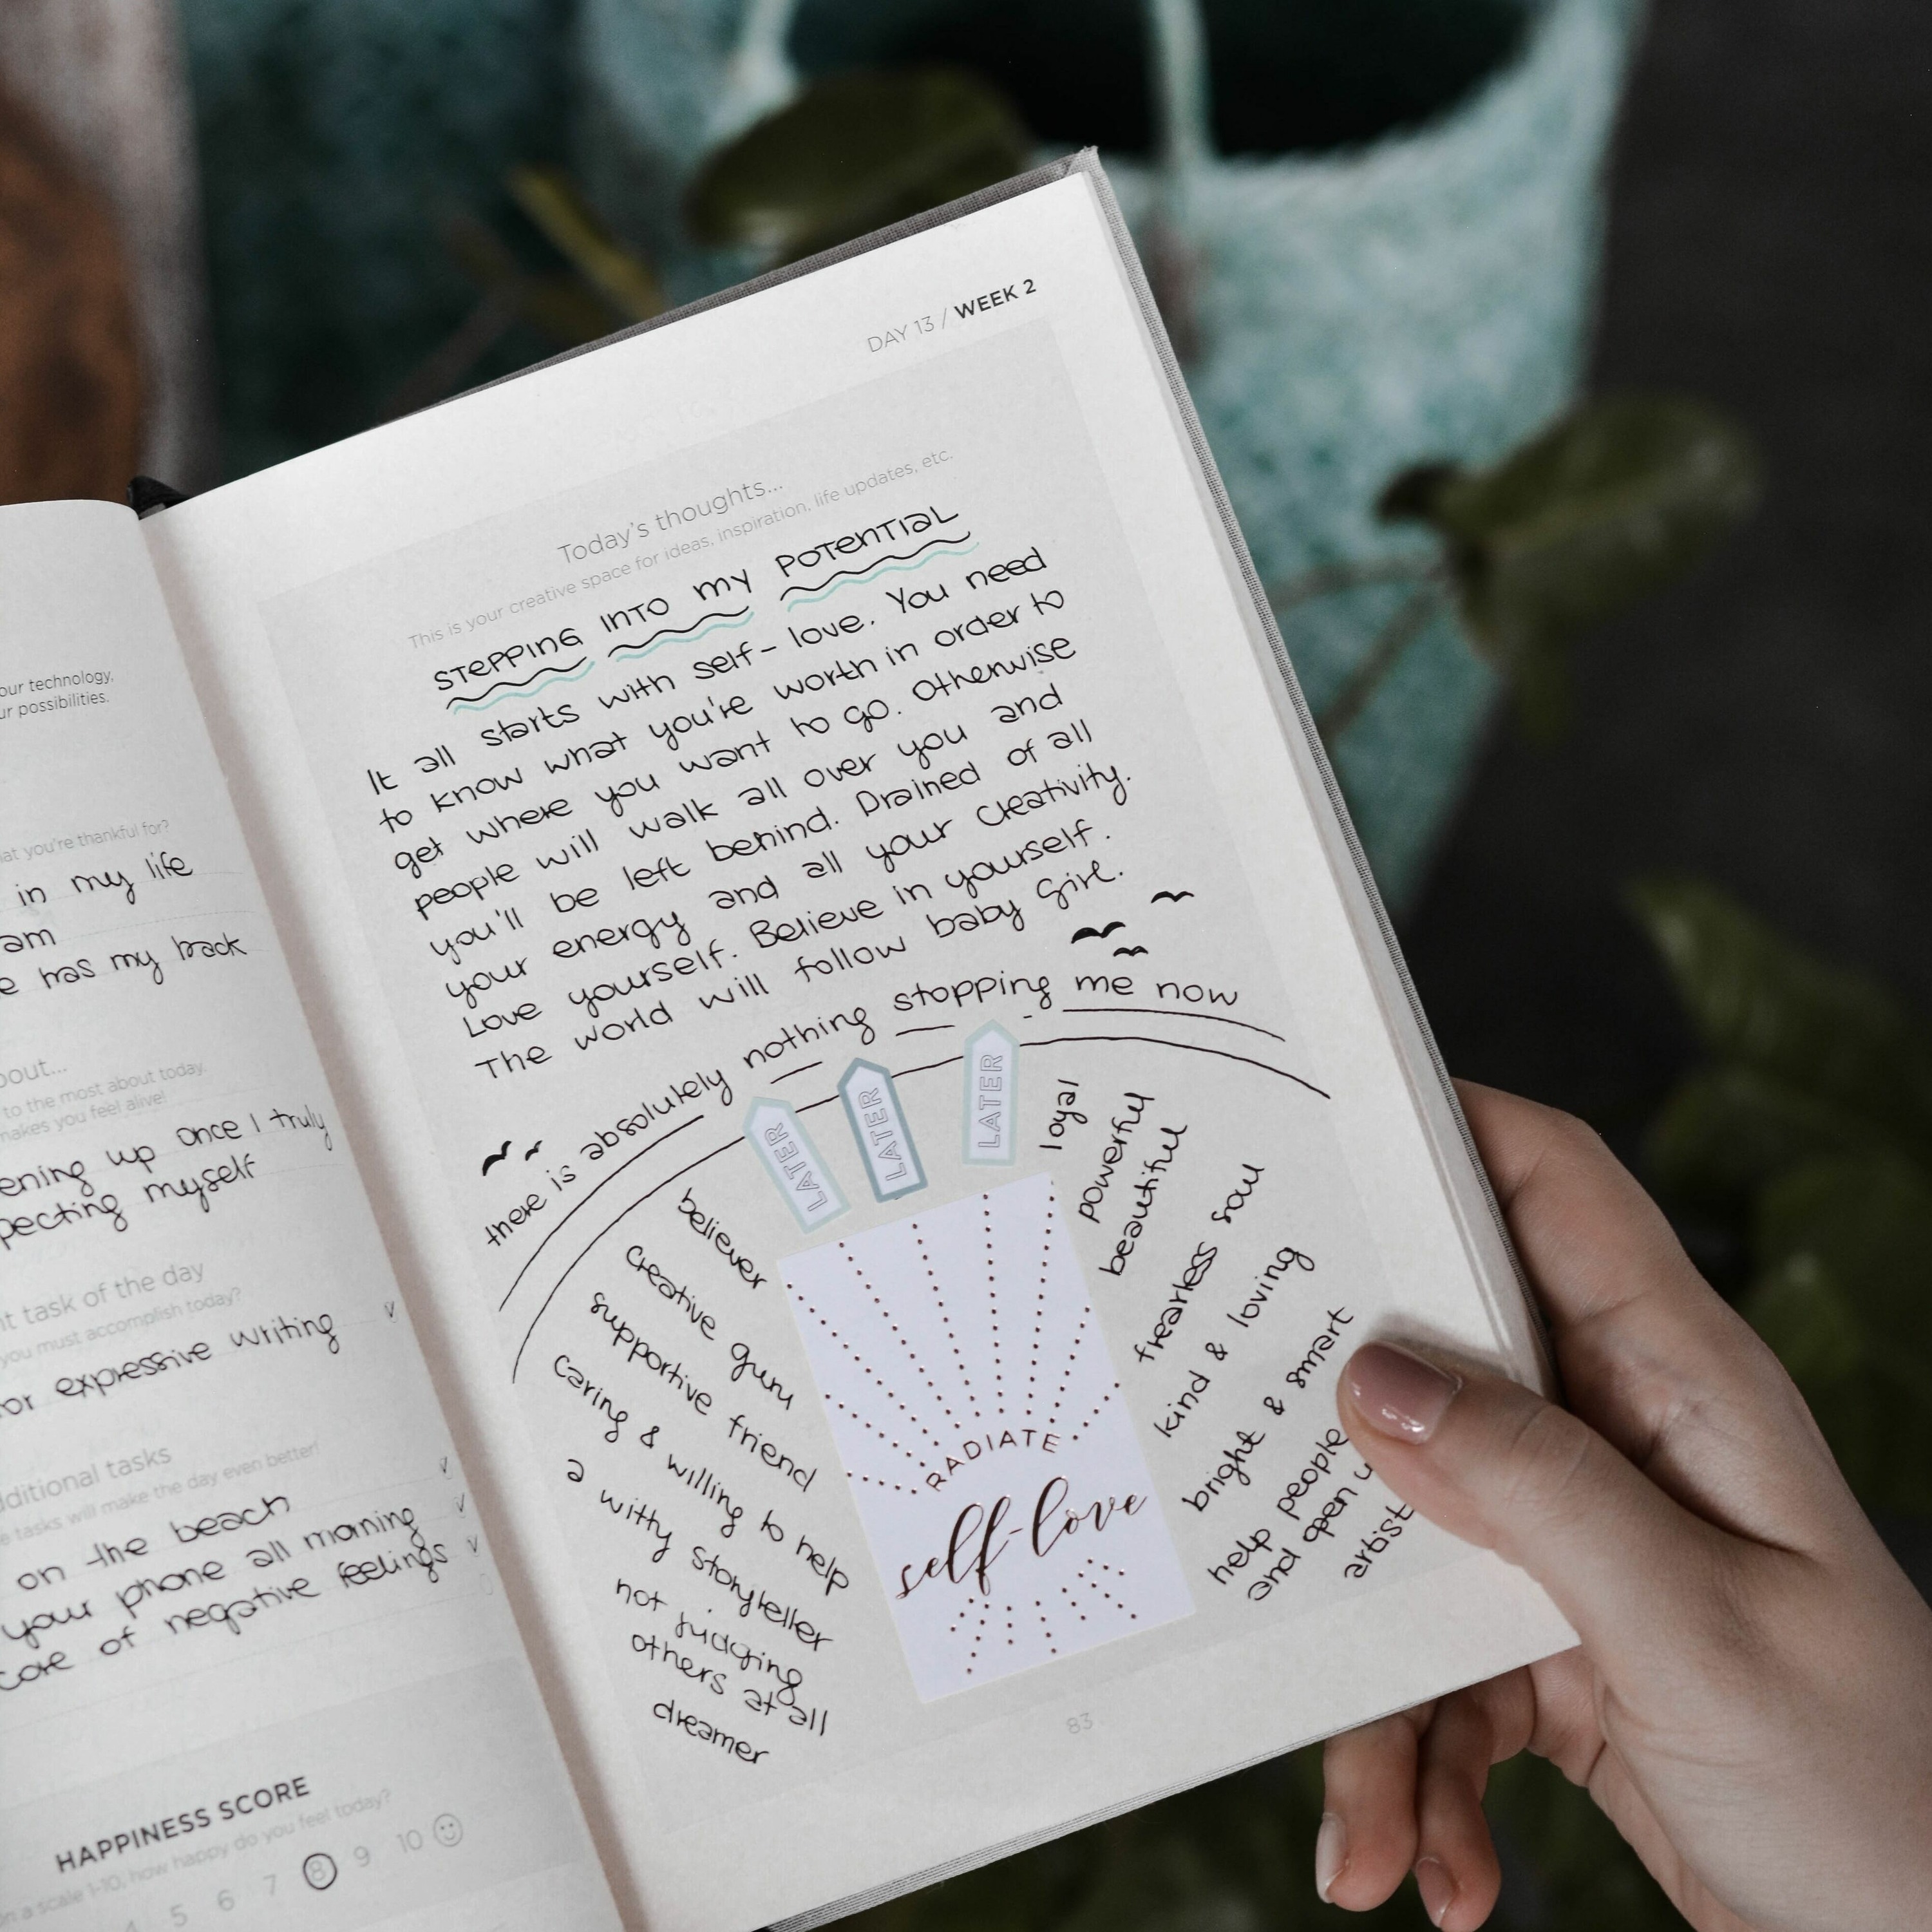 our technology,
ur possibilities.
at you're thankful for?
in my life
am
e has my back
out...
to the most about today,
makes you feel alive!
ening up once I truly
pecting myself
t task of the day
you must accomplish today?
or expressive writing
ditional tasks
e tasks will make the day even better!
on the beach
your phone all morning
core of negative feelings
HAPPINESS SCORE
on a scale 1-10, how happy do you feel today?
4 5 6 7 8 9 10
DAY 13 / WEEK 2
Today's thoughts...
This is your creative space for ideas, inspiration, life updates, etc.
STEPPING INTO MY POTENTIAL
It all starts with self-love. You need
to know what you're worth in order to
get where you want to go. Otherwise
people will walk all over you and
you'll be left behind. Drained of all
your energy and all your creativity.
Love yourself. Believe in yourself.
The world will follow baby girl.
there is absolutely nothing stopping me now
LATER
LATER
LATER
believer
creative guru
supportive friend
caring & willing to help
a witty storyteller
not judging
others at all
dreamer
RADIATE
self-love
loyal
powerful
beautiful
fearless soul
kind & loving
bright & smart
help people
and open u
artist
83